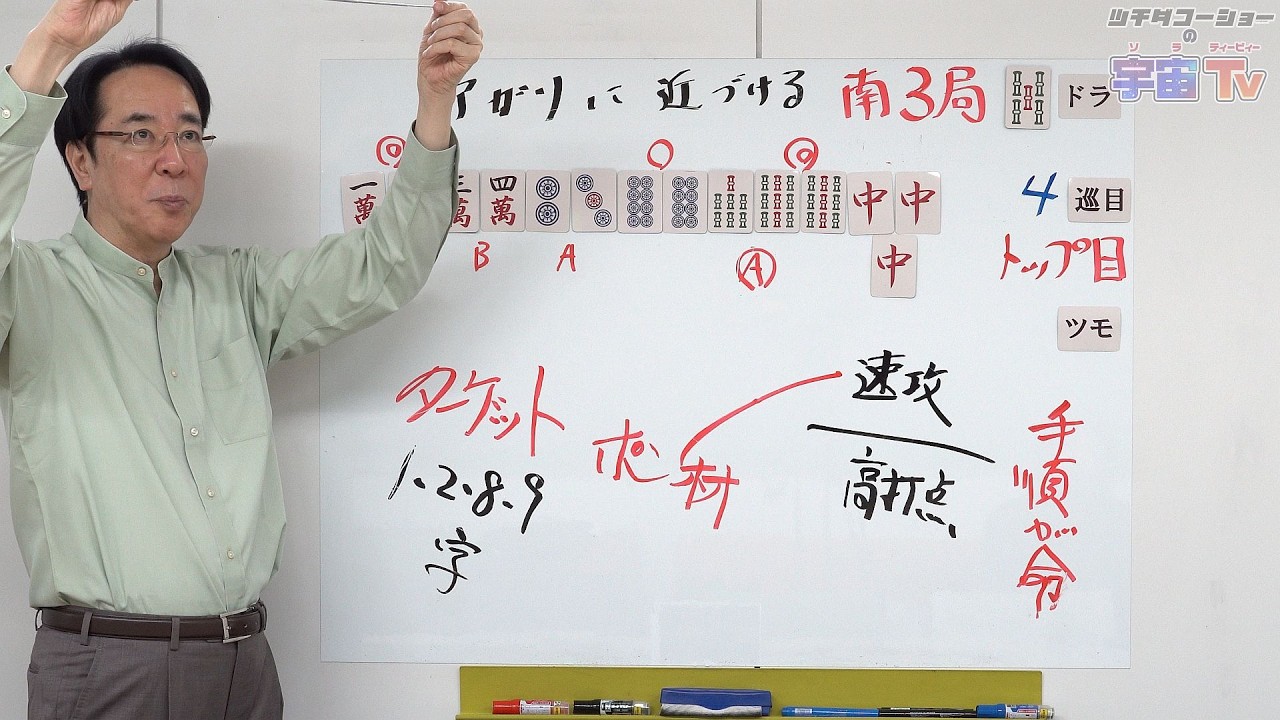 ツチダコーショー
の
ソラ ティービィー
宇宙TV
アガりに近づける 南3局 ドラ
一萬 三萬 四萬 中 中
4 巡目
B A A
中
トップ目
ツモ
ターゲット
1、2、8、9
字
素材
速攻
高打点
手順が命